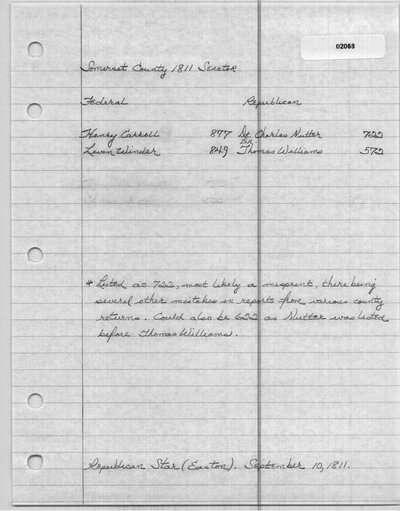 02063
Somerset County 1811 Senator
Federal Republican
Henry Carroll 877 Dr. Charles Nutter 722
Leven Winder 849 Thomas Williams 572
* Listed as 722, most likely a misprint, there being
several other mistakes in reports from various county
returns. Could also be 622 as Nutter was listed
before Thomas Williams.
Republican Star (Easton). September 10, 1811.